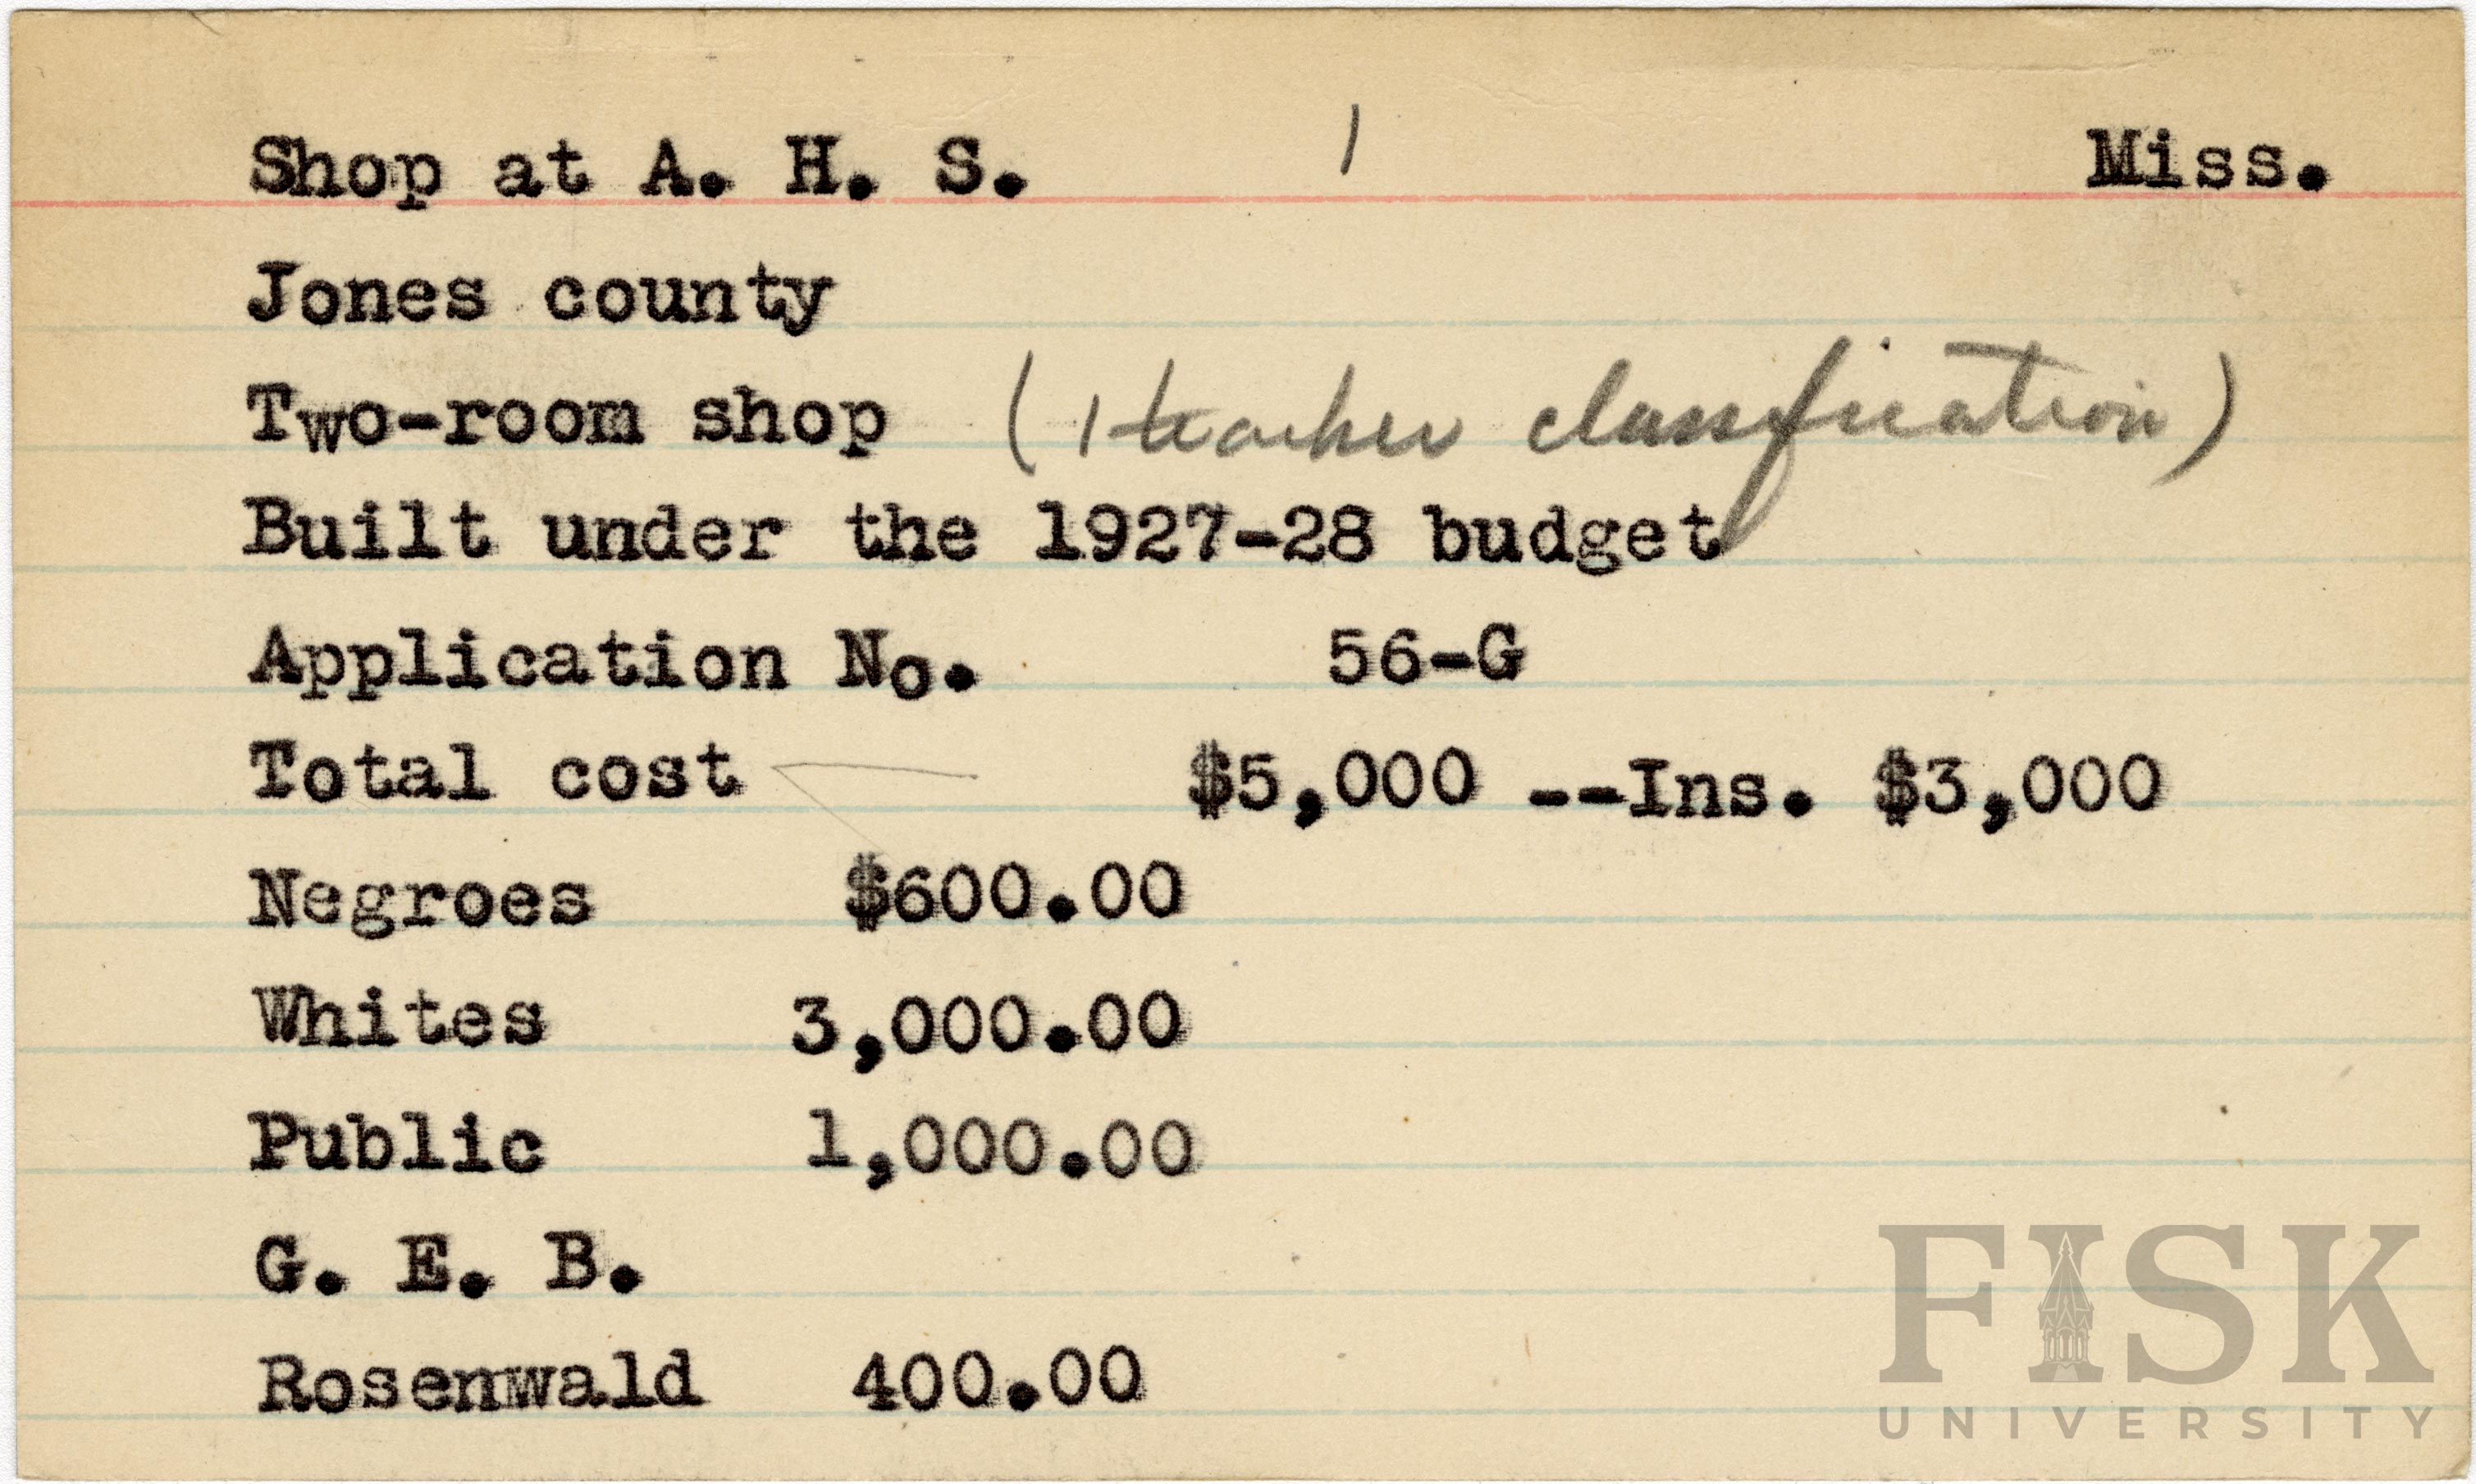 Shop at A. H. S. 1 Miss.
Jones county
Two-room shop (1 teacher classification)
Built under the 1927-28 budget
Application No. 56-G
Total cost $5,000 --Ins. $3,000
Negroes $600.00
Whites 3,000.00
Public 1,000.00
G. E. B.
Rosenwald 400.00
FISK
UNIVERSITY